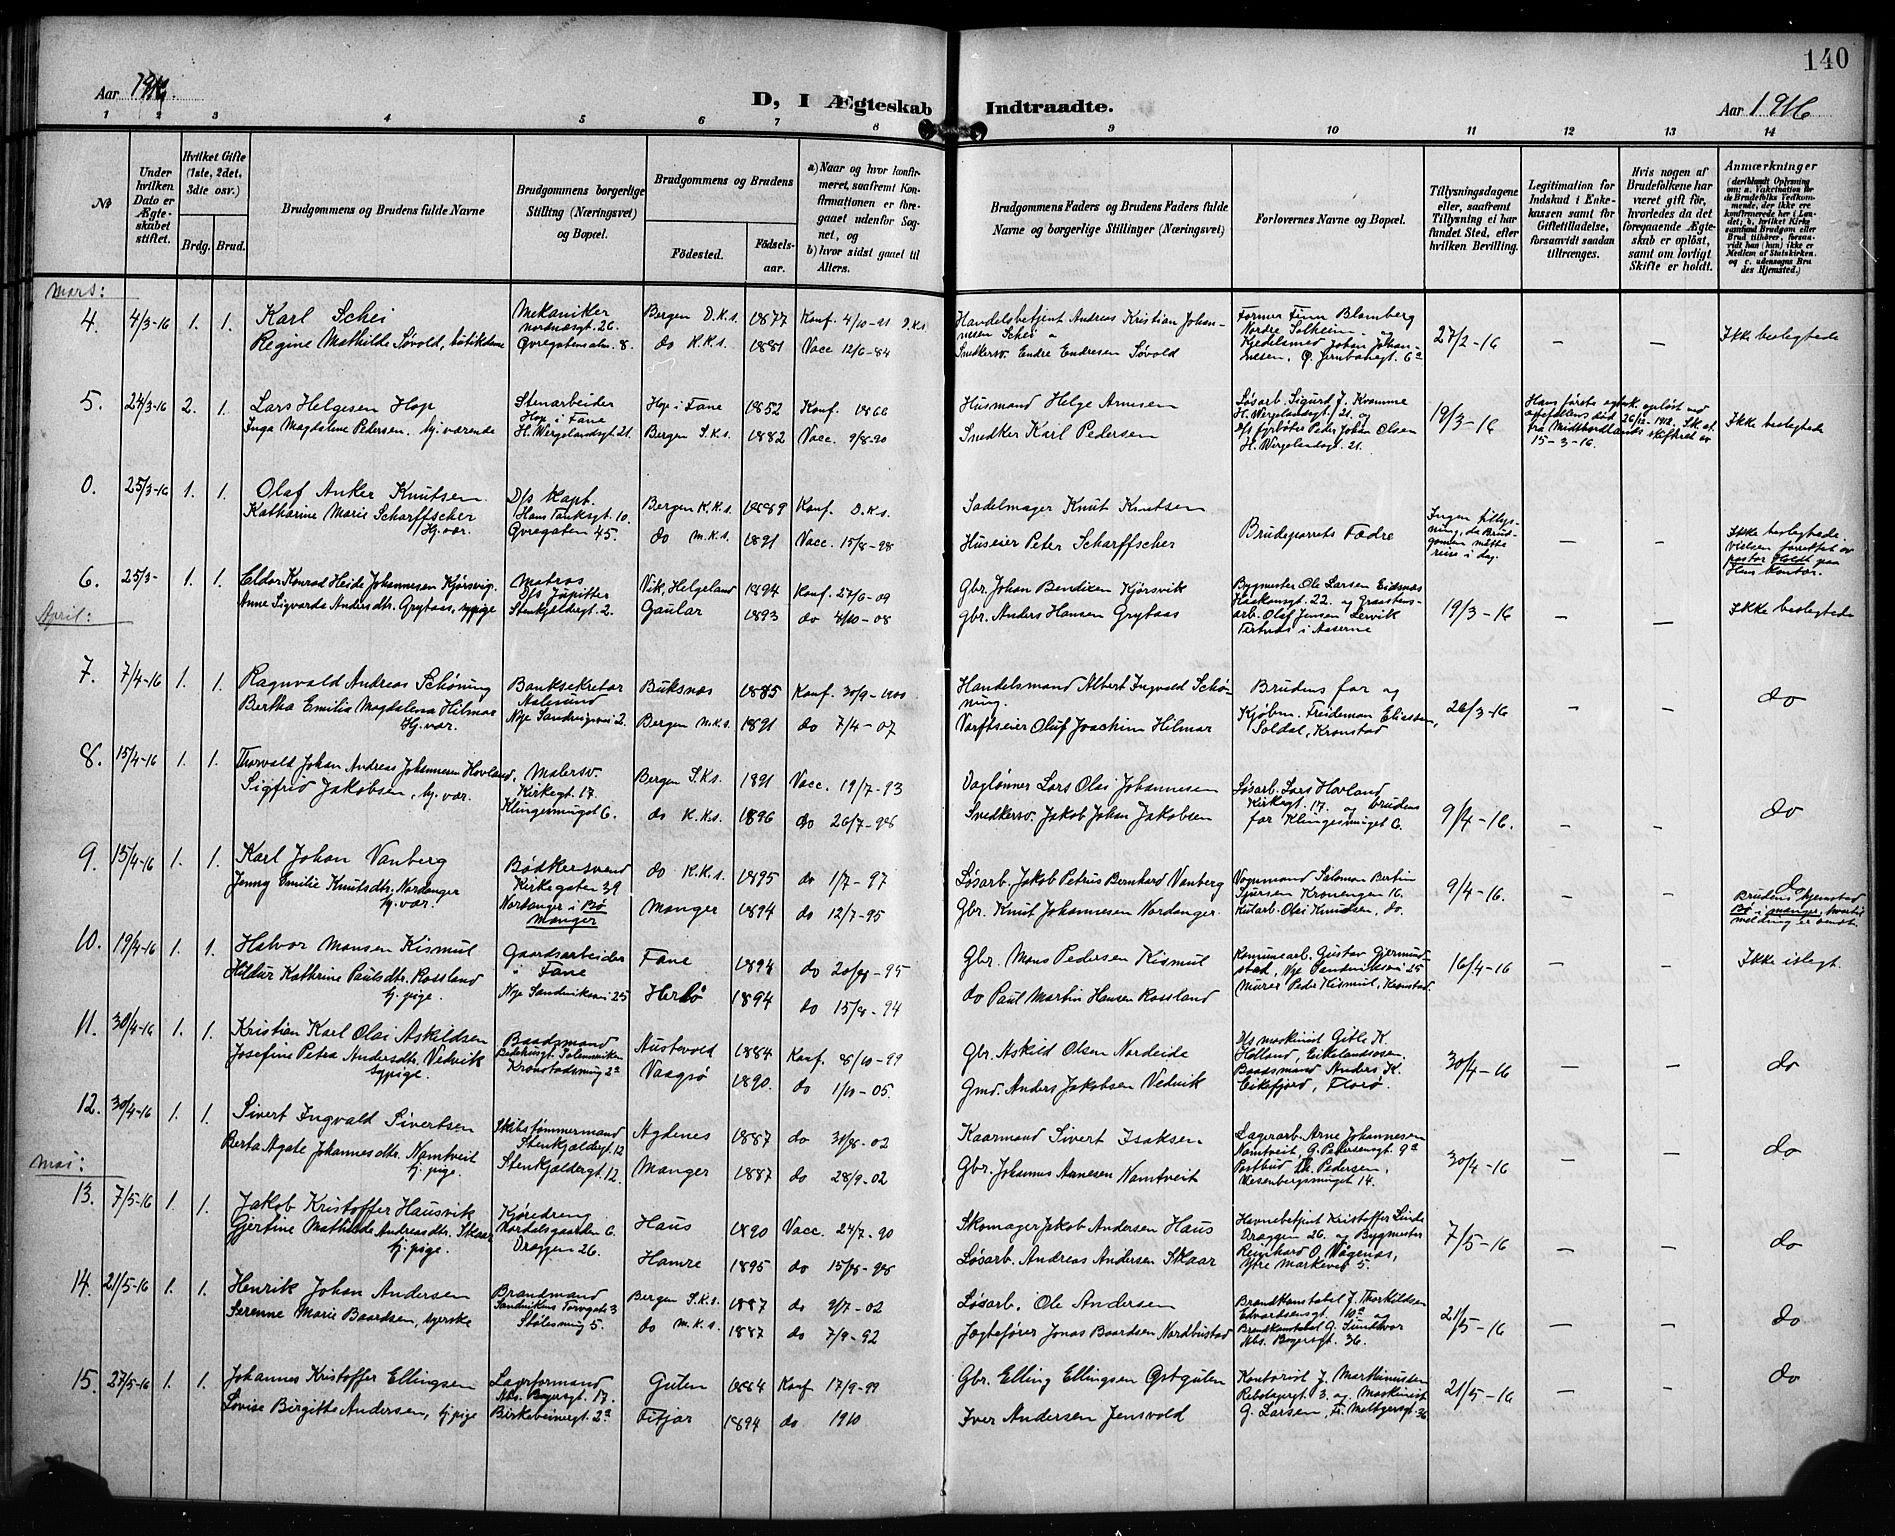 140
Aar 1916.
D, I Ægteskab Indtraadte.
Aar 1916
1 2 3 4 5 6 7 8 9 10 11 12 13 14
No
Under hvilken Dato er Ægteskabet stiftet.
Hvilket Gifte (1ste, 2det, 3die osv.)
Brdg. Brud.
Brudgommens og Brudens fulde Navne
Brudgommens borgerlige Stilling (Næringsvei) og Bopæl.
Brudgommens og Brudens
Fødested.
Fødselsaar.
a) Naar og hvor konfirmeret, saafremt Konfirmationen er foregaaet udenfor Sognet, og
b) hvor sidst gaaet til Alters.
Brudgommens Faders og Brudens Faders fulde Navne og borgerlige Stillinger (Næringsvei)
Forlovernes Navne og Bopæl.
Tillysningsdagene eller, saafremt Tillysning ei har fundet Sted, efter hvilken Bevilling.
Legitimation for Indskud i Enkekassen samt for Giftetilladelse, forsaavidt saadan tiltrænges.
Hvis nogen af Brudefolkene har været gift før, hvorledes da det foregaaende Ægteskab er opløst, samt om lovligt Skifte er holdt.
Anmærkninger
(deriblandt Oplysning om: a. Vakcination for de Brudefolks Vedkommende, der ikke ere konfirmerede her i Landet; b. hvilket Kirkesamfund Brudgom eller Brud tilhører, forsaavidt han (hun) ikke er Medlem af Statskirken, og c. udensogns Brudes Hjemsted.)
Mars:
4. 4/3-16 1. 1. Karl Schei Mekaniker Nordnæsgt. 26. Bergen D.K.s. 1877 Konf. 4/10-91 D.K.s.
Regine Mathilde Søvold, butikdame Øvregatens alm. 8. do K.K.s. 1881 Vacc 12/6-84
Handelsbetjent Andreas Kristian Johannesen Schei
Snedkersv. Endre Endresen Søvold
Former Finn Blomberg Nordre Solheim og Kjedelsmed Johan Johannesen, Ø. Jernbanegt. 6a
27/2-16 – – Ikke beslegtede
5. 24/3-16 2. 1. Lars Helgesen Hop Stenarbeider Hop i Fane Hop i Fane 1852 Konf. 1866
Inga Magdalene Pedersen. hj.værende H. Wergelandsgt. 21. Bergen S.K.s. 1882 Vacc. 9/8-90
Husmand Helge Arnesen
Snedker Karl Pedersen
Løsarb. Sigurd J. Kromme H. Wergelandsgt. 21. og D/s fyrbøter Peder Johan Olsen H. Wergelandsgt. 21.
19/3-16 Hans første egtsk. opløst ved 26/12-1912. Sk.at. fra Midthordlands skifteret av 15-3-16. Ikke beslegtede
0. 25/3-16 1. 1. Olaf Anker Knutsen D/s Kapt. Hans Tanksgt. 10. Bergen K.K.s. 1889 Konf. D.K.s.
Katharine Marie Scharffscher Hj.vær. Øvregaten 45. do M.K.s. 1891 Vacc. 15/8-98
Sadelmager Knut Knutsen
Huseier Peter Scharffscher
Brudeparets Fædre
Ingen tillysning, da Brudgommen måtte reise i dag. – – Ikke beslegtede. Vielsen forrettet av pastor Holdt paa Hans Kontor.
6. 25/3- 1. 1. Eldor Konrad Heide Johannesen Kjørsvig. Matros D/s Jupitter Vik, Helgeland 1894 Konf. 27/6-09
Anne Sigvarda Andersdtr. Grytaas, sypige Stenkjeldergt. 2. Gaular 1893 do 4/10-08
Gbr. Johan Bendixen Kjørsvik
Gbr. Anders Hansen Grytaas
Bygmester Ole Larsen Eidsnæs Haakonsgt. 22. og Graastensarb. Olaf Jensen Lervik Tertnæs i Aaserne
19/3-16 – – Ikke beslegtede
April:
7. 7/4-16 1. 1. Ragnvald Andreas Schøning Banksekretær Aalesund Buksnæs 1885 Konf. 30/9-1900
Bertha Emilie Magdalena Hilmar Hj.vær. Nye Sandvigsvei 2. Bergen M.K.s. 1891 do 7/4-07
Handelsmand Albert Ingvald Schøning.
Verftseier Oluf Joachim Hilmar
Brudens far og Kjøbm. Freideman Eliassen, Soldal, Kronstad
26/3-16 – – do
8. 15/4-16 1. 1. Thorvald Johan Andreas Johannesen Hovland, Malersv. Kirkegt. 17. Bergen S.K.s. 1891 Vacc. 19/7-93
Sigfrid Jakobsen, hj.vær. Klingesmuget 6. do K.K.s. 1896 do 26/7-98
Daglønner Lars Olai Johannesen
Snedkersv. Jakob Johan Jakobsen
Løsarb. Lars Hovland Kirkegt. 17. og brudens far Klingesmuget 6.
9/4-16. – – do
9. 15/4-16 1. 1. Karl Johan Vanberg Bødkersvend Kirkegaten 39 do K.K.s. 1895 do 1/7-97
Jenny Emilie Knutsdtr. Nordanger hj.vær. Nordanger i Bø Manger Manger 1894 do 12/7-95
Løsarb. Jakob Petrus Bernhard Vanberg
Gbr. Knut Johannesen Nordanger.
Vognmand Salomon Bertin Sjursen Kronengen 16. Kularb. Olai Knudsen, do.
9/4-16. – – do Brudens hjemsted Bø i Manger, hvortil melding er sendt.
10. 19/4-16 1. 1. Halvor Monsen Kismul Gaardsarbeider i Fane Fane 1894 do 20/8-95
Hildur Kathrine Paulsdtr. Rossland hj.pige. Nye Sandviksvei 25 Herlø 1894 do 15/8-94
Gbr. Mons Pedersen Kismul
do Paul Martin Hansen Rossland
Komunearb. Gustav Gjermundstad, Nye Sandviksvei 25 Murer Peder Kismul, Kronstad.
16/4-16 – – Ikke islegt.
11. 30/4-16 1. 1. Kristian Karl Olai Askildsen Baadsmand Austevold 1884 Konf. 8/10-99
Josefine Petra Andersdtr. Vedvik sypige. Kronstadsmug 2a Vaagsø 1890. do 1/10-05.
Gbr. Askild Olsen Nordeide
Gmd. Anders Jakobsen Vedvik
D/s maskinist Gitle K. Helland, Eikelandsosen. Baadsmand Anders K. Eikefjord, Florø.
30/4-16 – – do
12. 30/4-16 1. 1. Sivert Ingvald Sivertsen Skibstømmermand Stenkjeldergt. 12 Agdenes 1887 do 31/8-02
Berta Agate Johannesdtr. Namtveit hj.pige. Stenkjeldergt. 12. Manger 1887 do 28/9-02
Kaarmand Sivert Isaksen
Gbr. Johannes Arnesen Namtveit
Lagerarb. Arne Johannesen Namtveit, G. Pedersensgt. 9a Postbud Th. Pedersen, Wesenbergsmuget 14.
30/4-16 – – do
Mai:
13. 7/5-16 1. 1. Jakob Kristoffer Hausvik Kjøredreng Nordalsgaarden 6 Haus 1890 Vacc. 24/7-90
Gjertine Mathilde Andreasdtr. Skaar hj.pige. Dræggen 26. Hamre 1895 do 15/8-98
Skomager Jakob Andersen Haus
Løsarb. Andreas Andersen Skaar
Havnebetjent Kristoffer Linde Dræggen 26. og Bygmester Reinhard O. Vågenæs, Ytre Markevei 5.
7/5-16 – – do
14. 21/5-16 1. 1. Henrik Johan Andersen Brandmand Sandvikens Torvgate 3 Bergen S.K.s. 1887 do 9/7-02
Serenne Marie Baardsen, syerske Stølesmug 5. do M.K.s. 1887 do 7/9-92
Løsarb. Ole Andersen
Jægtefører Jonas Baardsen Nordbustad
Brandkonstabel J. Thorkildsen Edvardsensgt. 10a og Brandkonstabel G. Sundvor Abs. Beyersgt. 36.
21/5-16 – – do
15. 27/5-16 1. 1. Johannes Kristoffer Ellingsen Lagerformand Abs. Beyersgt. 17. Gulen 1884 Konf 17/9-99
Lovise Birgitte Andersen, hj.pige Birkebeinergt. 2a Fitjar 1894 do 1910
Gbr. Elling Ellingsen Østgulen
Iver Andersen Jensvold
Kontorist J. Marthinussen Rebslagergt. 3. og Maskinist G. Larsen, Fr. Meltzersgt. 36
21/5-16 – – do